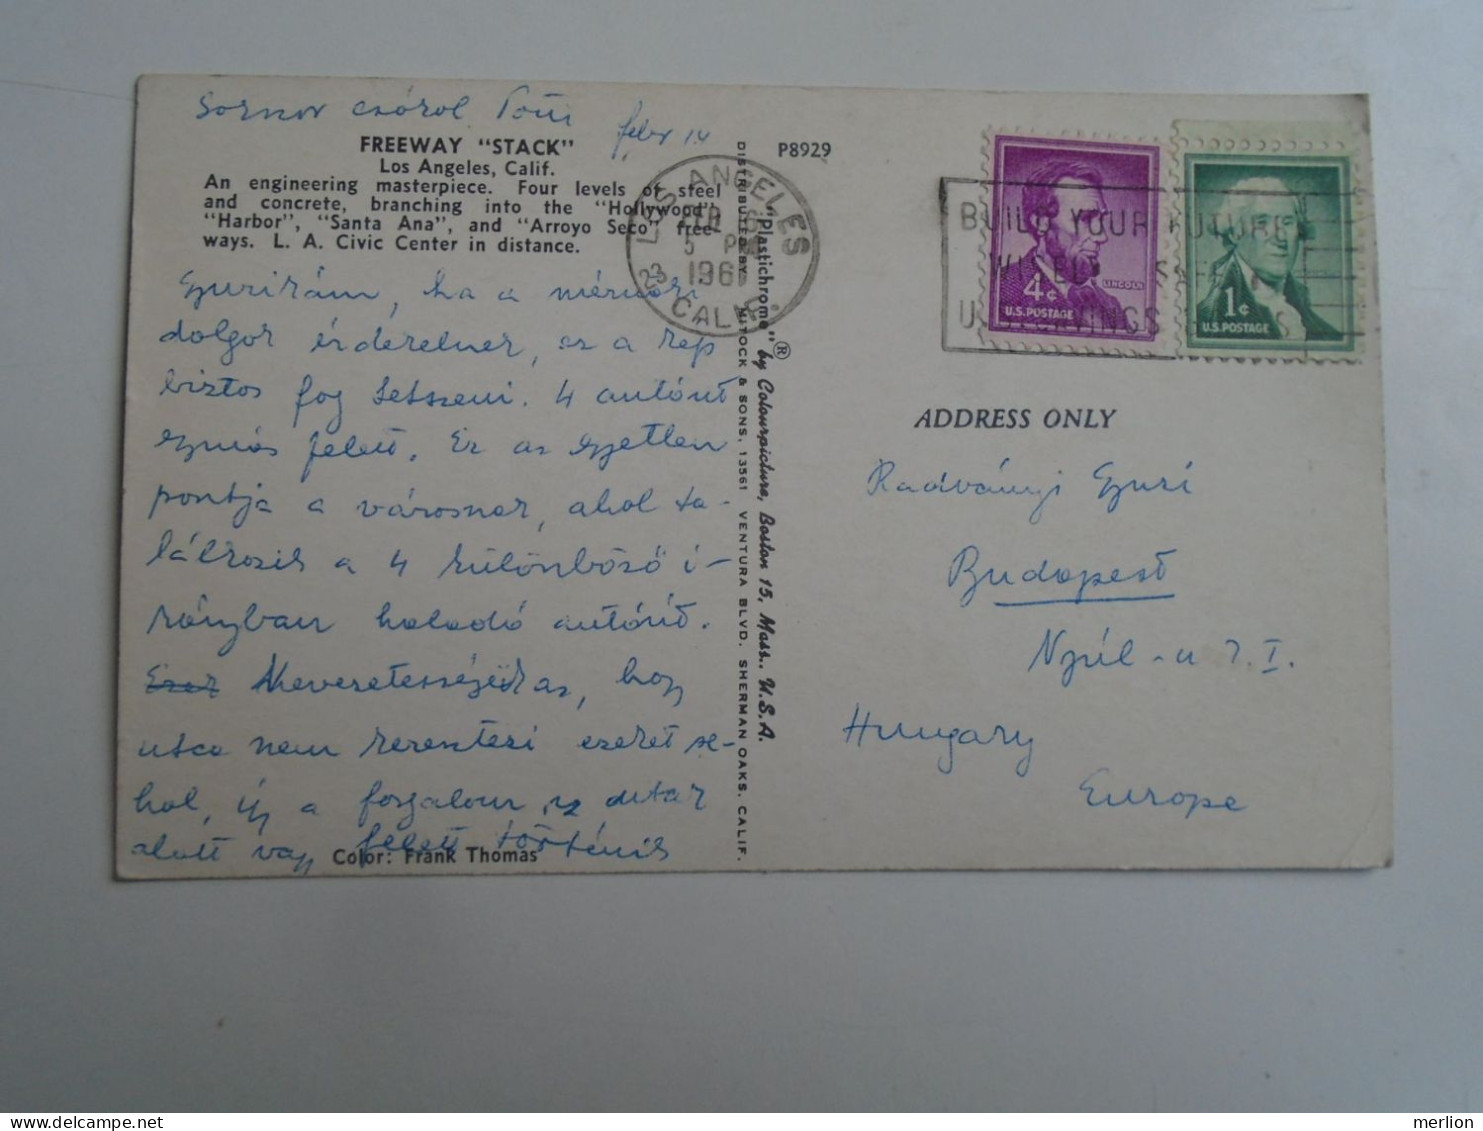 febr 14
FREEWAY "STACK"
Los Angeles, Calif.
An engineering masterpiece. Four levels of steel
and concrete, branching into the "Hollywood",
"Harbor", "Santa Ana", and "Arroyo Seco" free-
ways. L. A. Civic Center in distance.
Gyurikám, ha a mérnöki
dolgok érdekelnek, ez a kép
biztos fog tetszeni. 4 autóút
egymás felett. Ez az egyetlen
pontja a városnak, ahol ta-
lálkozik a 4 különböző i-
rányban haladó autóút.
hogy
utca nem keresztezi ezeket se-
hol, így a forgalom
alatt vagy felett történik
Color: Frank Thomas
DISTRIBUTED BY MITOCK & SONS, 13561 VENTURA BLVD. SHERMAN OAKS, CALIF.
"Plastichrome" ® by Colourpicture, Boston 15, Mass., U.S.A.
P8929
LOS ANGELES
FEB
5 PM
1961
23 CALIF.
BUILD YOUR FUTURE
WISELY SAFELY
U.S. SAVINGS BONDS
4¢
LINCOLN
U.S. POSTAGE
1¢
U.S. POSTAGE
ADDRESS ONLY
Radványi Gyuri
Budapest
Nyúl-u 7. I.
Hungary
Europe
merlion